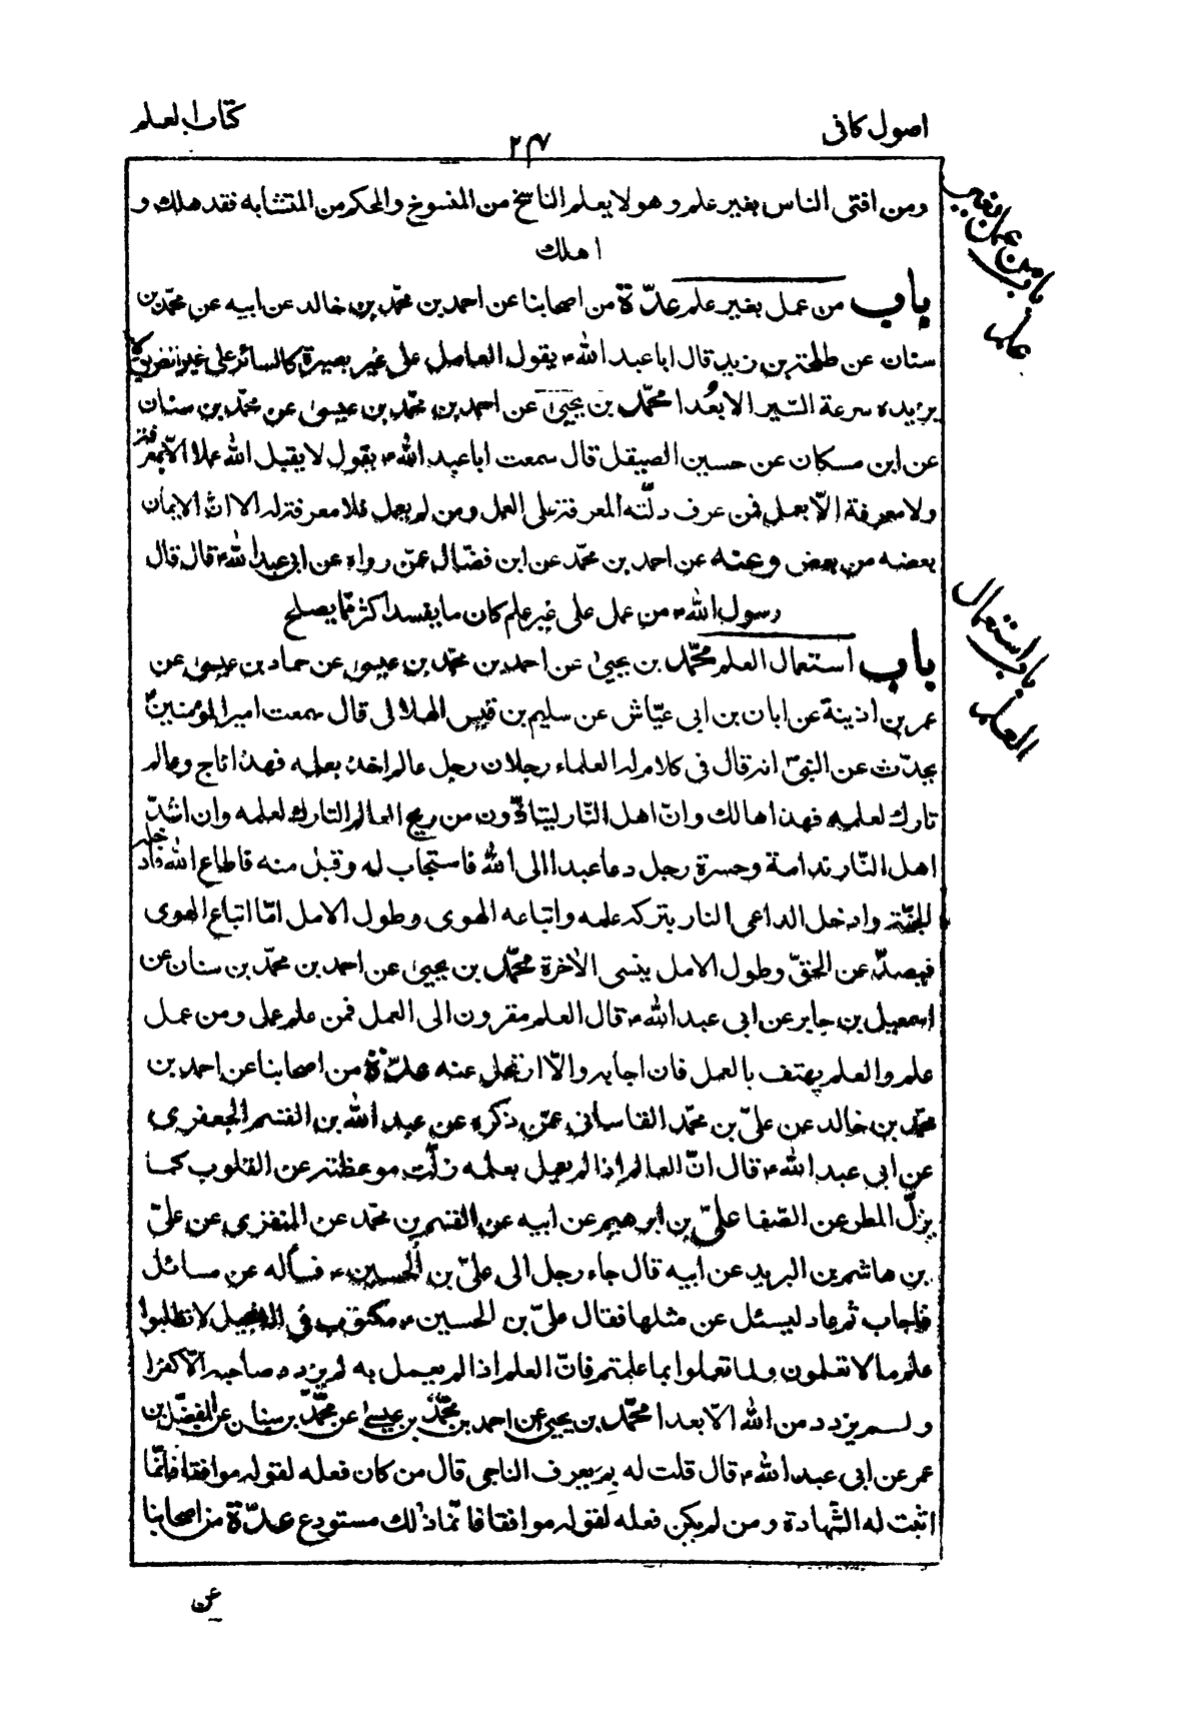 اصول كافى
٢٤
كتاب العلم
ومن افتى الناس بغير علم وهو لا يعلم الناسخ من المنسوخ والمحكم من المتشابه فقد هلك و
اهلك
باب من عمل بغير علم عدّة من اصحابنا عن احمد بن محمّد بن خالد عن ابيه عن محمّد بن
سنان عن طلحة بن زيد قال ابا عبد الله ع يقول العامل على غير بصيرة كالسائر على غير الطريق لا
يزيده سرعة السّير الا بعُدا محمّد بن يحيىٰ عن احمد بن محمّد بن عيسىٰ عن محمّد بن سنان
عن ابن مسكان عن حسين الصيقل قال سمعت ابا عبد الله ع يقول لا يقبل الله عملا الا بمعرفة
ولا معرفة الّا بعمل فمن عرف دلّته المعرفة على العمل ومن لم يعمل فلا معرفة له الا انّ الايمان
بعضه من بعض وعنه عن احمد بن محمّد عن ابن فضّال عمّن رواه عن ابى عبد الله ع قال قال
رسول الله ص من عمل على غير علم كان ما يفسد اكثر مّما يصلح
باب استعمال العلم محمّد بن يحيىٰ عن احمد بن محمّد بن عيسىٰ عن حماد بن عيسىٰ عن
عمر بن اذينة عن ابان بن ابى عيّاش عن سليم بن قيس الهلالى قال سمعت امير المؤمنين ع
يحدّث عن النبىّ ص انه قال فى كلام له العلماء رجلان رجل عالم اخذ بعلمه فهذا ناج وعالم
تارك لعلمه فهذا هالك وانّ اهل النّار ليتاذّون من ريح العالم التارك لعلمه وان اشدّ
اهل النّار ندامة وحسرة رجل دعا عبدا الى الله فاستجاب له وقبل منه فاطاع الله فادخله
الجنّة وادخل الداعى النار بتركه علمه واتباعه الهوى وطول الامل امّا اتباع الهوى
فيصدّ عن الحقّ وطول الامل ينسى الاخرة محمّد بن يحيىٰ عن احمد بن محمّد بن سنان عن
اسمعيل بن جابر عن ابى عبد الله ع قال العلم مقرون الى العمل فمن علم عمل ومن عمل
علم والعلم يهتف بالعمل فان اجابه والّا ارتحل عنه عدّة من اصحابنا عن احمد بن
محمّد بن خالد عن علىّ بن محمّد القاسانى عمّن ذكره عن عبد الله بن القسم الجعفرى
عن ابى عبد الله ع قال انّ العالم اذا لم يعمل بعلمه زلّت موعظته عن القلوب كما
يزلّ المطر عن الصّفا علىّ بن ابرهيم عن ابيه عن القسم بن محمّد عن المنقرى عن علىّ
بن هاشم بن البريد عن ابيه قال جاء رجل الى علىّ بن الحسين ع فسأله عن مسائل
فاجاب ثم عاد ليسئل عن مثلها فقال علىّ بن الحسين ع مكتوب فى الانجيل لا تطلبوا
علم ما لا تعلمون ولما تعملوا بما علمتم فانّ العلم اذا لم يعمل به لم يزدد صاحبه الّا كفرا
ولم يزدد من الله الّا بعدا محمّد بن يحيىٰ عن احمد بن محمّد بن عيسىٰ عن محمّد بن سنان عن المفضّل بن
عمر عن ابى عبد الله ع قال قلت له بم يعرف الناجى قال من كان فعله لقوله موافقا فانّما
اثبت له الشّهادة ومن لم يكن فعله لقوله موافقا فانّما ذلك مستودع عدّة من اصحابنا
عن
باب من عمل بغير
علم
باب استعمال
العلم